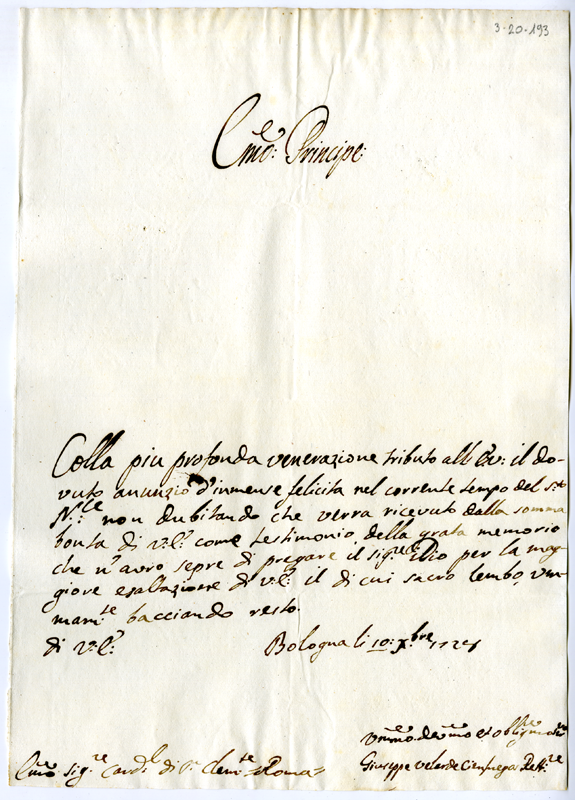 3-20-193
Emo: Principe:
Colla piu profonda venerazione tributo all'Ev: il do-
vuto anunzio d'inmense felicita nel corrente tempo del s:to
N:ce non dubitando che verra ricevuto dalla somma
bonta di v:E: come testimonio della grata memoria
che n'avro sepre di pregare il sig:re Idio per la mag-
giore esaltazione di v:E: il di cui sacro lembo, um-
mam:te bacciando resto.
di V:E: Bologna li 10: Xbre
Vmmo devmo et
Emo Sig:re Card:l di S: Clem:te Roma Giuseppe Velarde Cienfuegos Rett:re